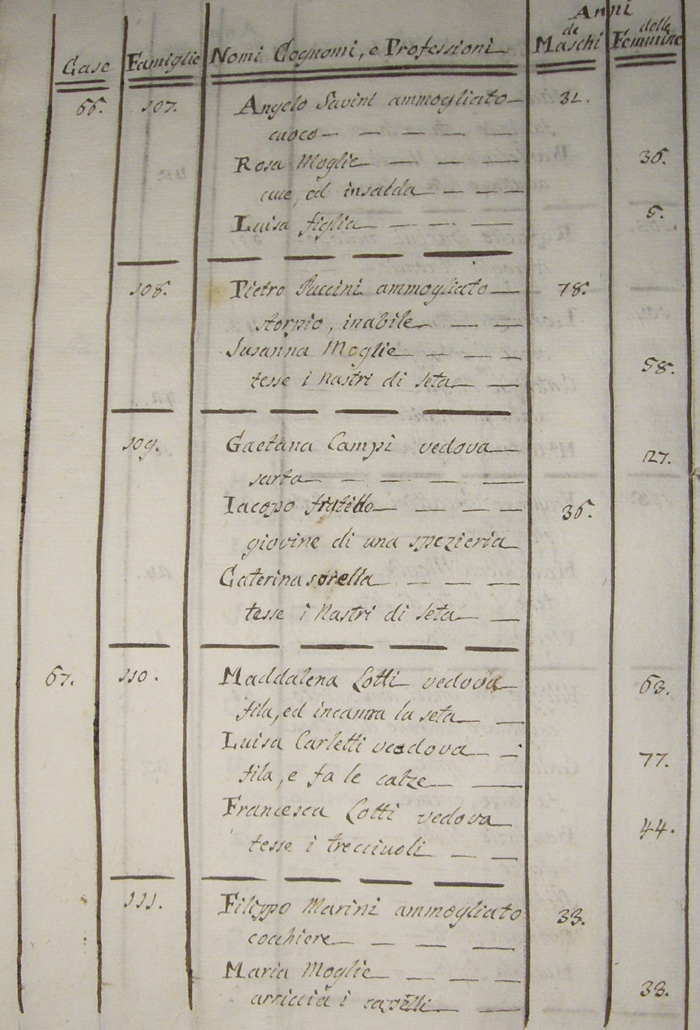 Anni
Case Famiglie Nomi Cognomi, e Professioni de Maschi delle Femmine
66. 107. Angelo Savini ammogliato 31.
cuoco
Rosa Moglie 36.
cuce, ed insalda
Luisa figlia 5.
108. Pietro Puccini ammogliato 78.
storpio, inabile
Susanna Moglie 58.
tesse i Nastri di seta
109. Gaetana Campi vedova 27.
sarta
Iacopo fratello 36.
giovine di una spezieria
Caterina sorella
tesse i Nastri di seta
67. 110. Maddalena Lotti vedova 63.
fila, ed incanna la seta
Luisa Carletti vedova 77.
fila, e fa le calze
Francesca Lotti vedova 44.
tesse i trecciuoli
111. Filippo Marini ammogliato 33.
cocchiere
Maria Moglie 33.
arriccia i capelli